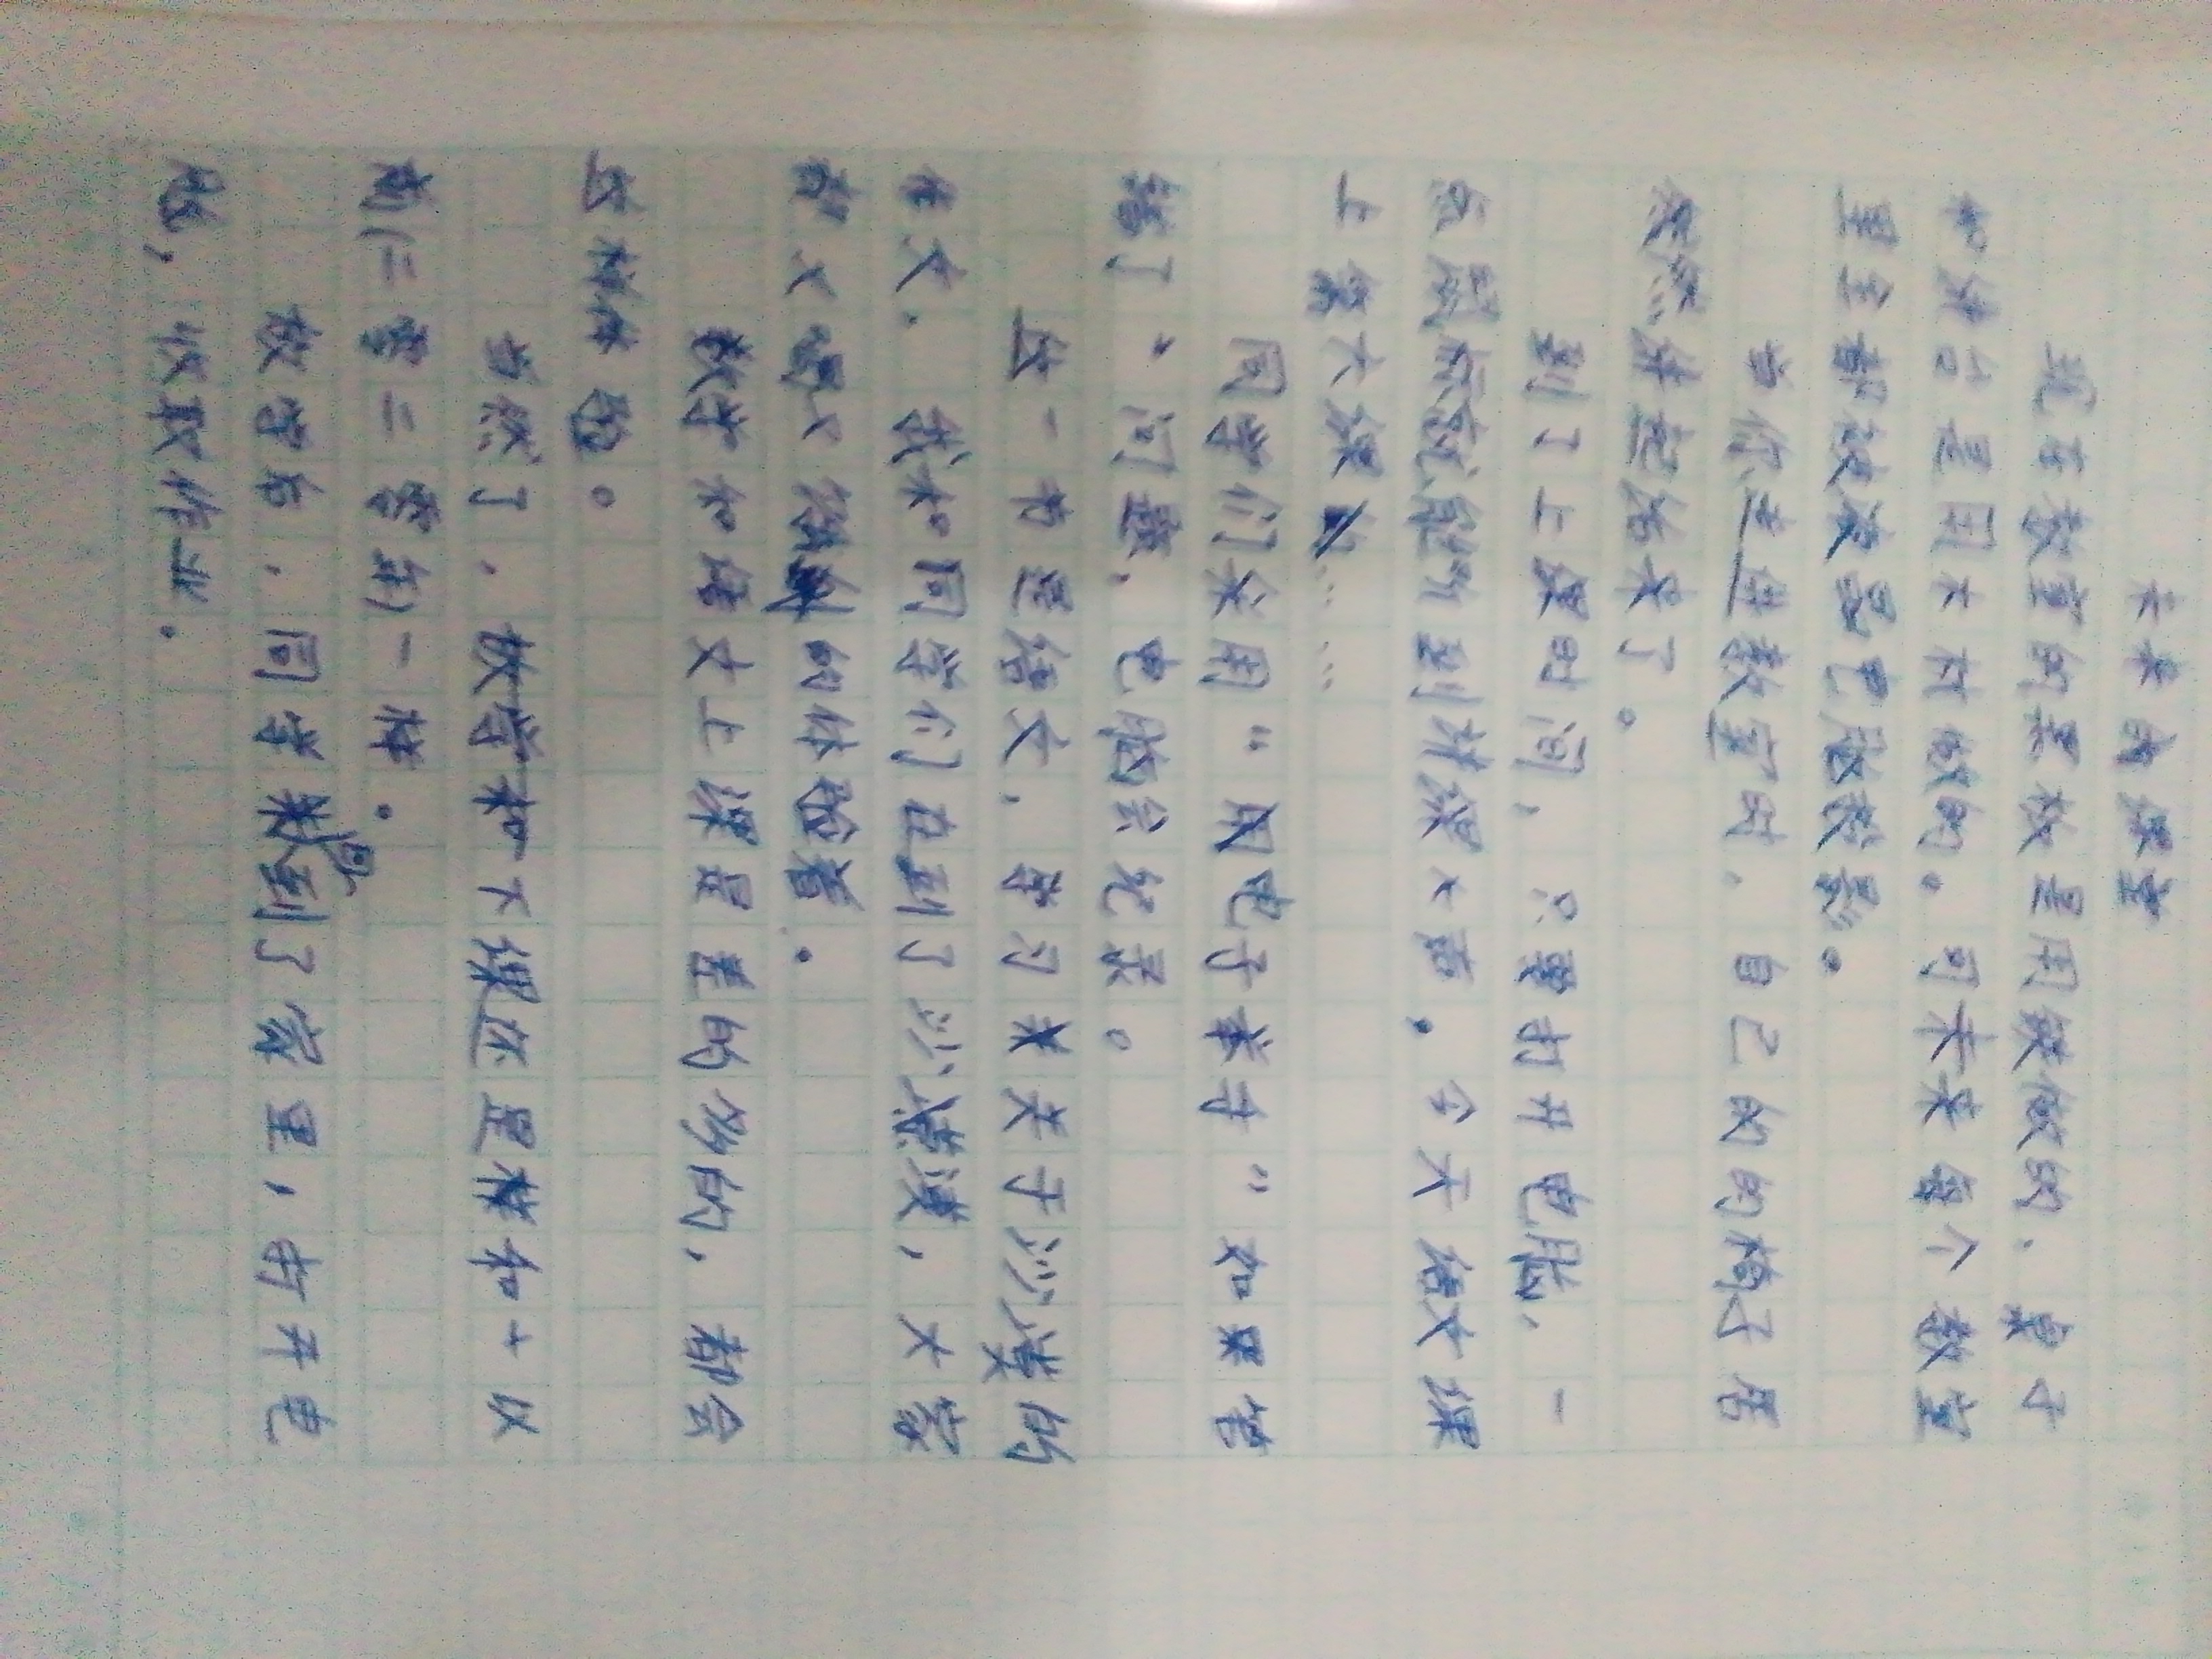 未来的课堂
现在教室的黑板是用铁做的，桌子
和讲台是用木材做的。可未来每个教室
里全都被液晶电脑代替。
当你走进教室时，自己的的椅子居
然讲起话来了。
到了上课时间，只要打开电脑，一
会儿你就能听到讲课声音，今天语文课
上第六课……
同学们采用“用电子举手”如果答
错了、问题，电脑会纪录。
这一节是语文，学习来关于沙漠的
作文，我和同学们在到了沙漠，大家
都又喝又的体验着。
数学和语文上课是差的多的，都会
这样体验。
当然了，放学和下课还是样和十以
前(二零二零年)一样。
放学后，同学来到了家里，打开电
脑，收取作业。